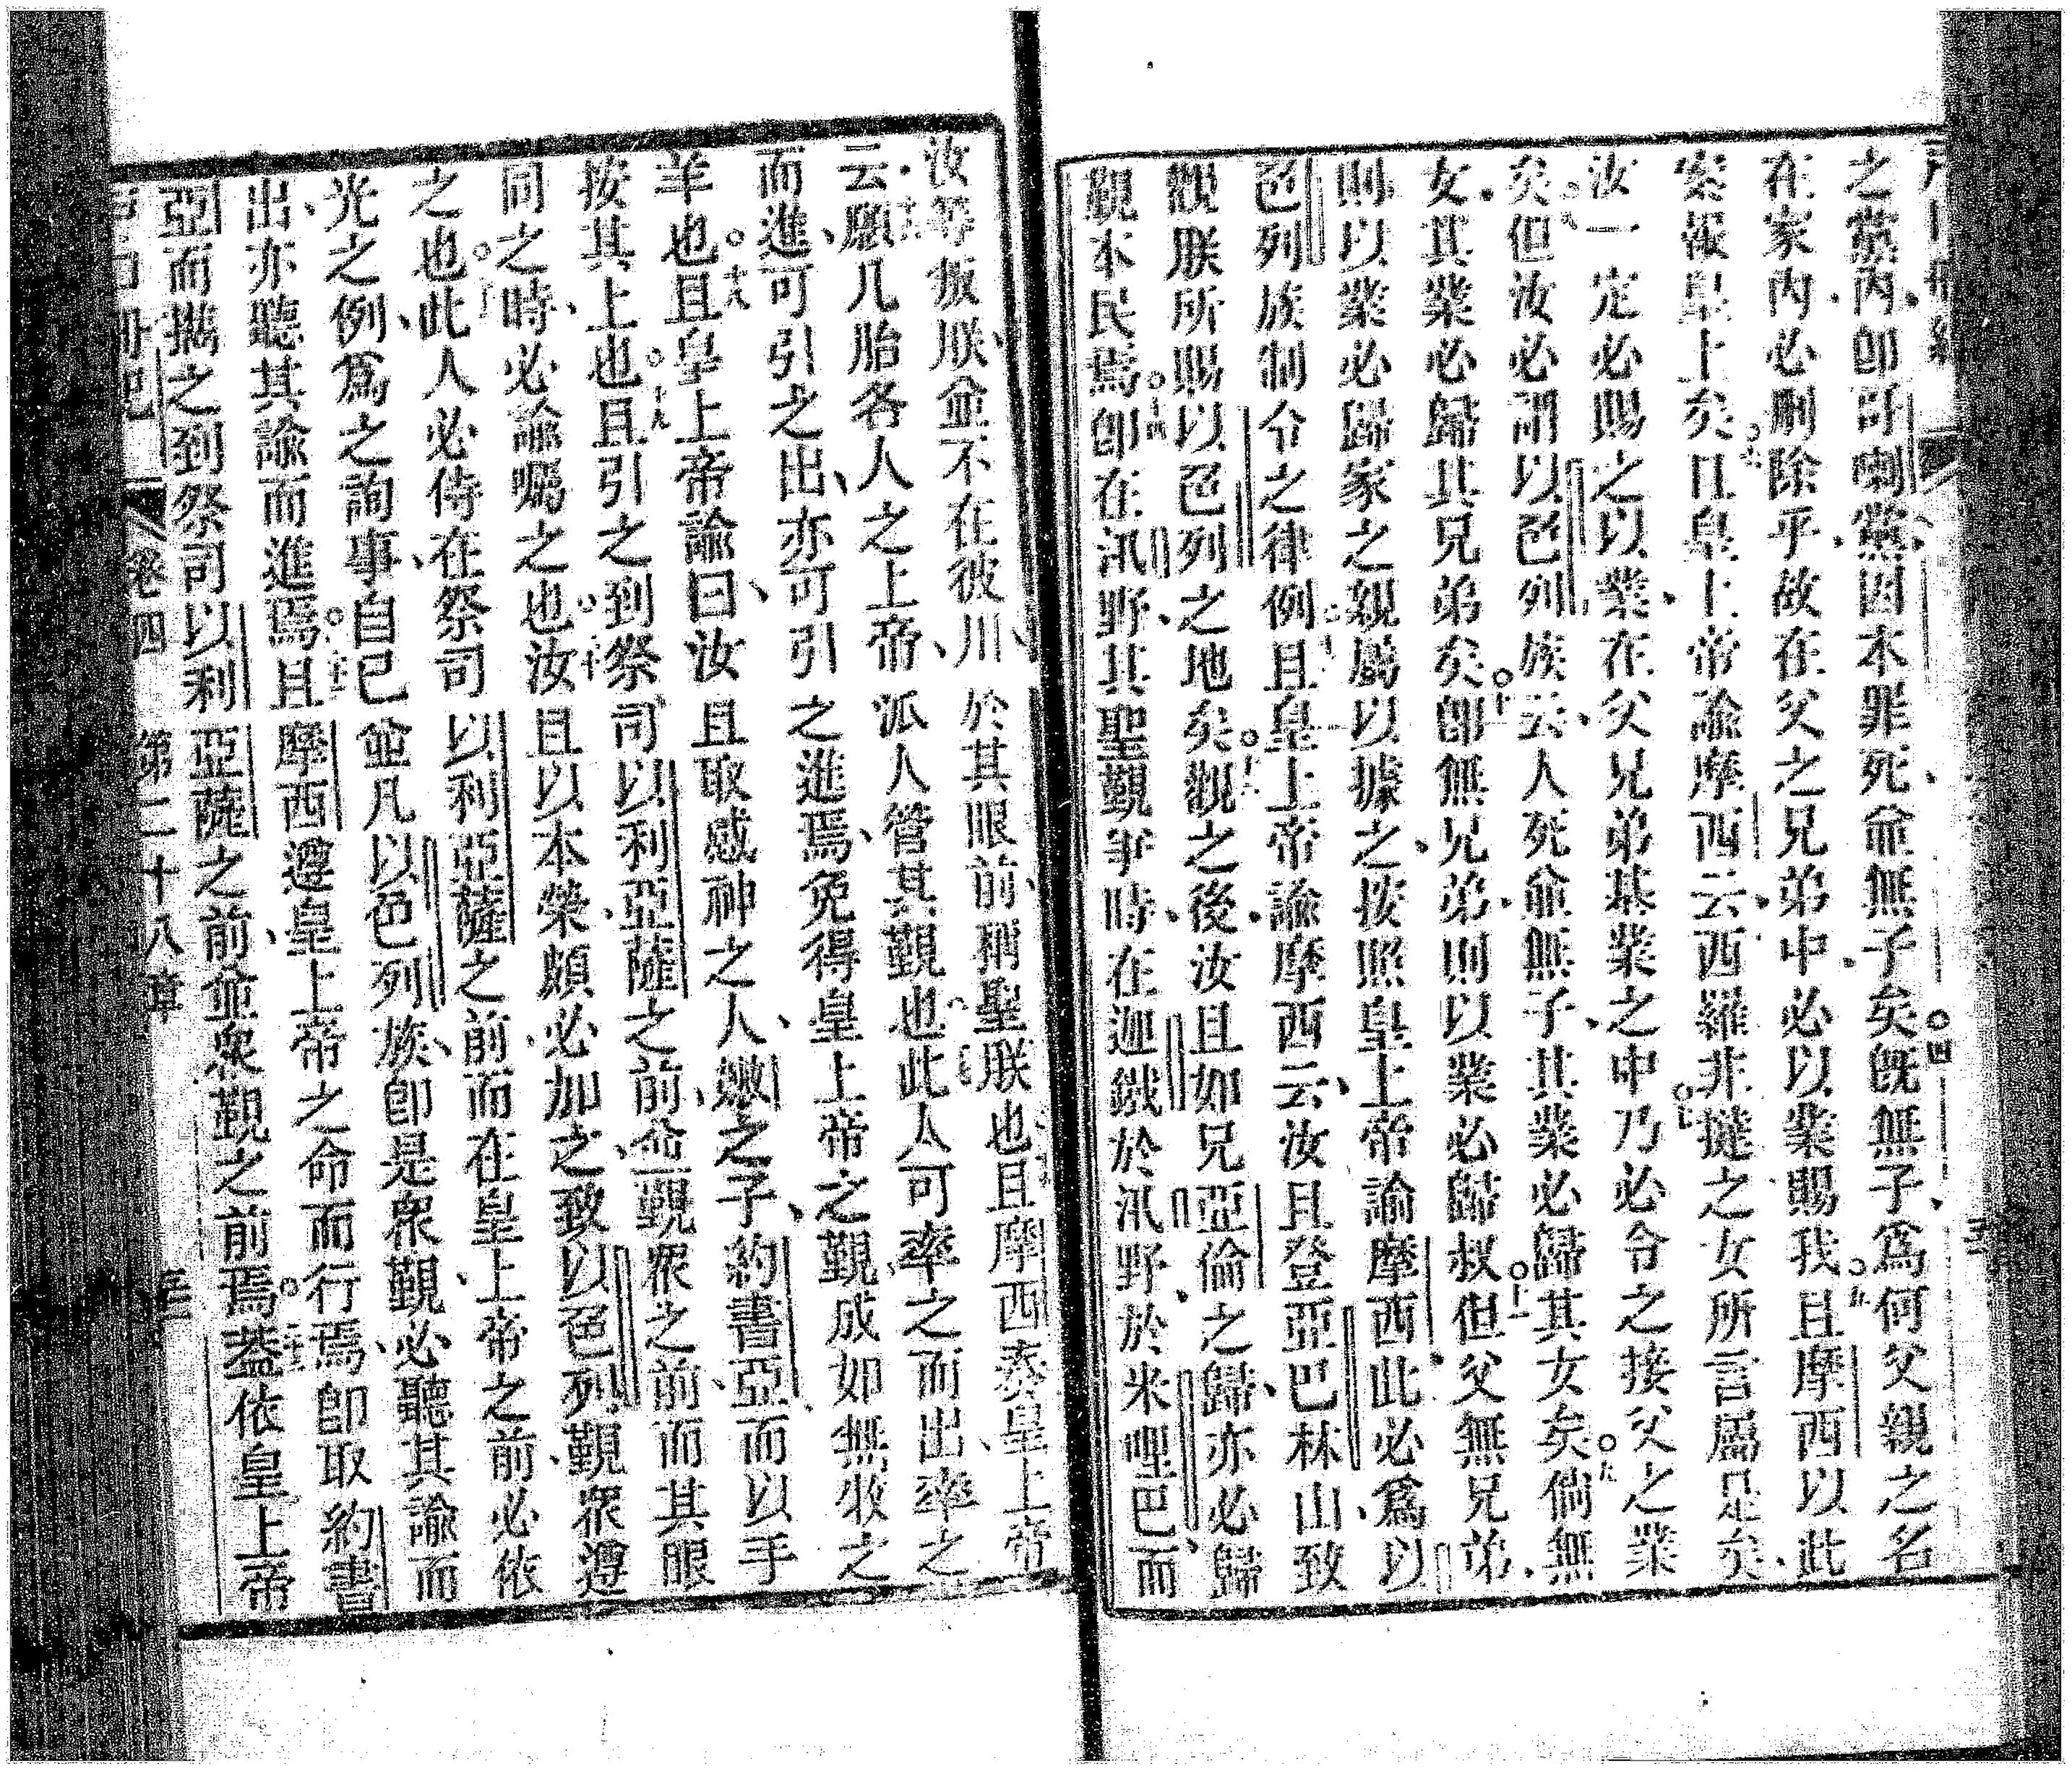 之黨內、卽哥喇黨因本罪死、並無子矣○四既無子爲何父親之名
在家內必刪除乎、故在父之兄弟中、必以業賜我○五且摩西以此
案報皇上矣○六且皇上帝諭摩西云、西羅非撻之女所言屬是矣、
汝一定必賜之以業、在父兄弟基業之中○七乃必令之接父之業
矣○八但汝必謂以色列族云、人死並無子、其業必歸其女矣○九倘無
女、其業必歸其兄弟矣○十卽無兄弟、則以業必歸叔○十一但父無兄弟、
則以業必歸家之親屬以據之、按照皇上帝諭摩西、此必爲以
色列族制令之律例○十二且皇上帝諭摩西云、汝且登亞巴林山、致
觀朕所賜以色列之地矣○十三觀之後、汝且如兄亞倫之歸、亦必歸
覲本民焉○十四卽在汛野、其聖覲爭時、在迦鐵於汛野、於米哩巴而
汝等叛朕、並不在彼川、於其眼前、稱聖朕也○十五且摩西奏皇上帝
云、○十六願凡胎各人之上帝、派人管其覲也○十七此人可率之而出、率之
而進、可引之出、亦可引之進焉、免得皇上帝之覲成如無牧之
羊也○十八且皇上帝諭曰、汝且取感神之人、嫩之子、約書亞而以手
按其上也○十九且引之到祭司以利亞薩之前、並覲眾之前、而其眼
同之時、必諭囑之也○二十汝且以本榮、頗必加之、致以色列覲眾遵
之也○二十一此人必侍在祭司以利亞薩之前、而在皇上帝之前、必依
光之例、爲之詢事、自己並凡以色列族、卽是眾覲、必聽其諭而
出、亦聽其諭而進焉○二十二且摩西遵皇上帝之命而行焉、卽取約書
亞而攜之到祭司以利亞薩之前、並眾覲之前焉○二十三葢依皇上帝
戶口冊紀 卷四 第二十八章